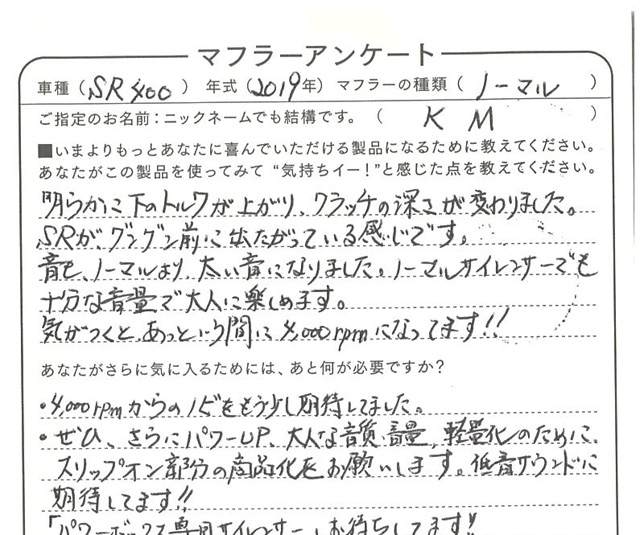 マフラーアンケート
車種（SR400） 年式（2019年）マフラーの種類（ノーマル）
ご指定のお名前：ニックネームでも結構です。（ KM ）
■いまよりもっとあなたに喜んでいただける製品になるために教えてください。
あなたがこの製品を使ってみて“気持ちイー！”と感じた点を教えてください。
明らかに下のトルクが上がり、クラッチの深さが変わりました。
SRが、グングン前に出たがっている感じです。
音も、ノーマルより太い音になりました。ノーマルサイレンサーでも
十分な音量で大人に楽しめます。
気がつくと、あっという間に4,000rpmになってます!!
あなたがさらに気に入るためには、あと何が必要ですか？
・4,000rpmからのノビをもう少し期待してました。
・ぜひ、さらにパワーUP、大人な音質、音量、軽量化のために、
スリップオン部分の商品化をお願いします。低音サウンドに
期待してます!!
「パワーボックス専用サイレンサー」お待ちしてます!!